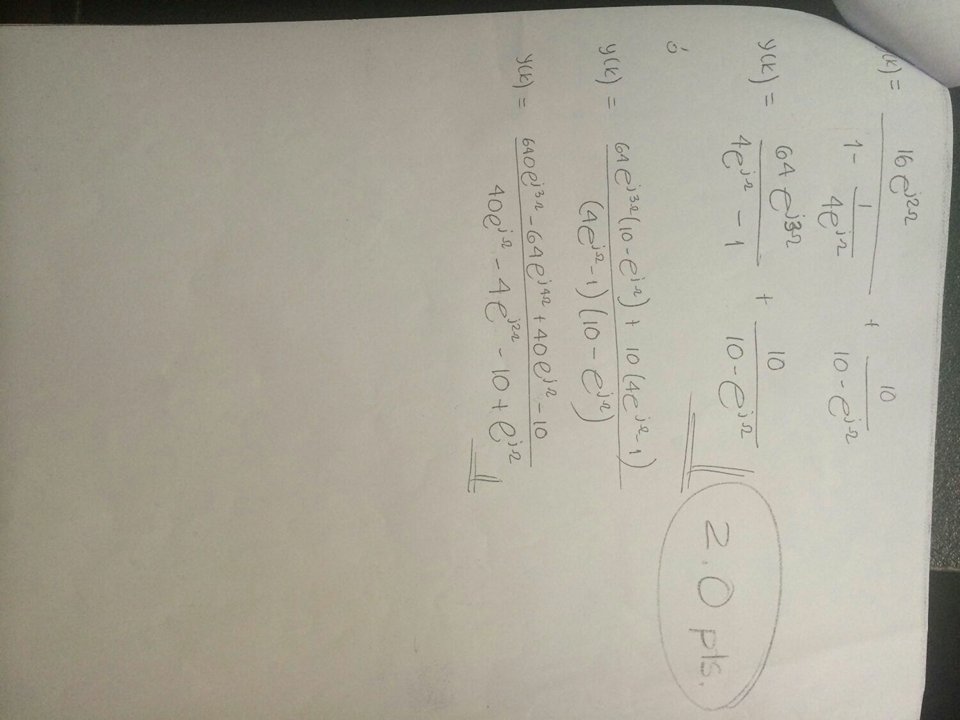 y(k) = 16e^{j2Ω} / (1 - 1/(4e^{jΩ})) + 10 / (10 - e^{jΩ})
y(k) = 64e^{j3Ω} / (4e^{jΩ} - 1) + 10 / (10 - e^{jΩ})
ó
y(k) = (64e^{j3Ω}(10 - e^{jΩ}) + 10(4e^{jΩ} - 1)) / ((4e^{jΩ} - 1)(10 - e^{jΩ}))
y(k) = (640e^{j3Ω} - 64e^{j4Ω} + 40e^{jΩ} - 10) / (40e^{jΩ} - 4e^{j2Ω} - 10 + e^{jΩ})
2.0 pts.